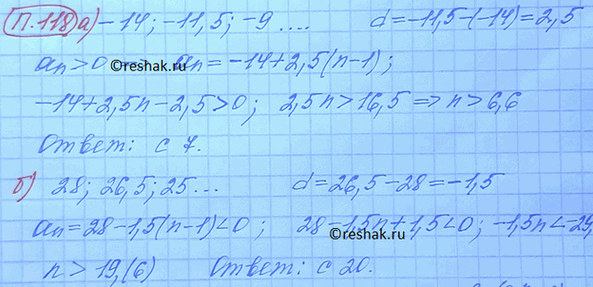 П.118 а) -14; -11,5; -9 .... d=-11,5-(-14)=2,5
an>0 ©reshak.ru an=-14+2,5(n-1);
-14+2,5n-2,5>0; 2,5n>16,5 => n>6,6
Ответ: с 7.
б) 28; 26,5; 25... d=26,5-28=-1,5
an=28-1,5(n-1)<0; 28-1,5n+1,5<0; -1,5n<-29,
©reshak.ru
n>19,(6) Ответ: с 20.